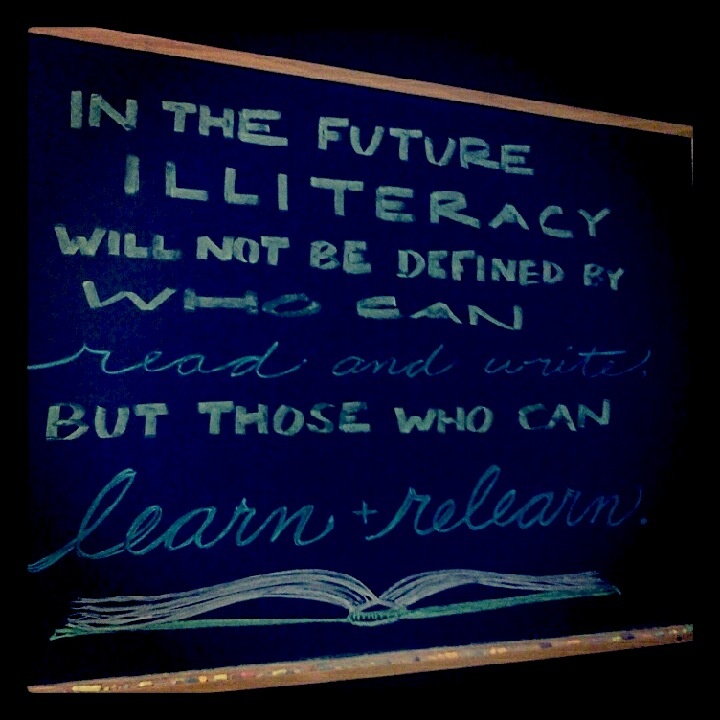 IN THE FUTURE
ILLITERACY
WILL NOT BE DEFINED BY
WHO CAN
read and write,
BUT THOSE WHO CAN
learn + relearn.